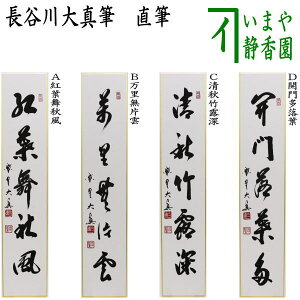 長谷川大真筆 直筆
いまや
静香園
A紅葉舞秋風
B万里無片雲
C清秋竹露深
D開門多落葉
紅葉舞秋風
萬里無片雲
清秋竹露深
開門落葉多